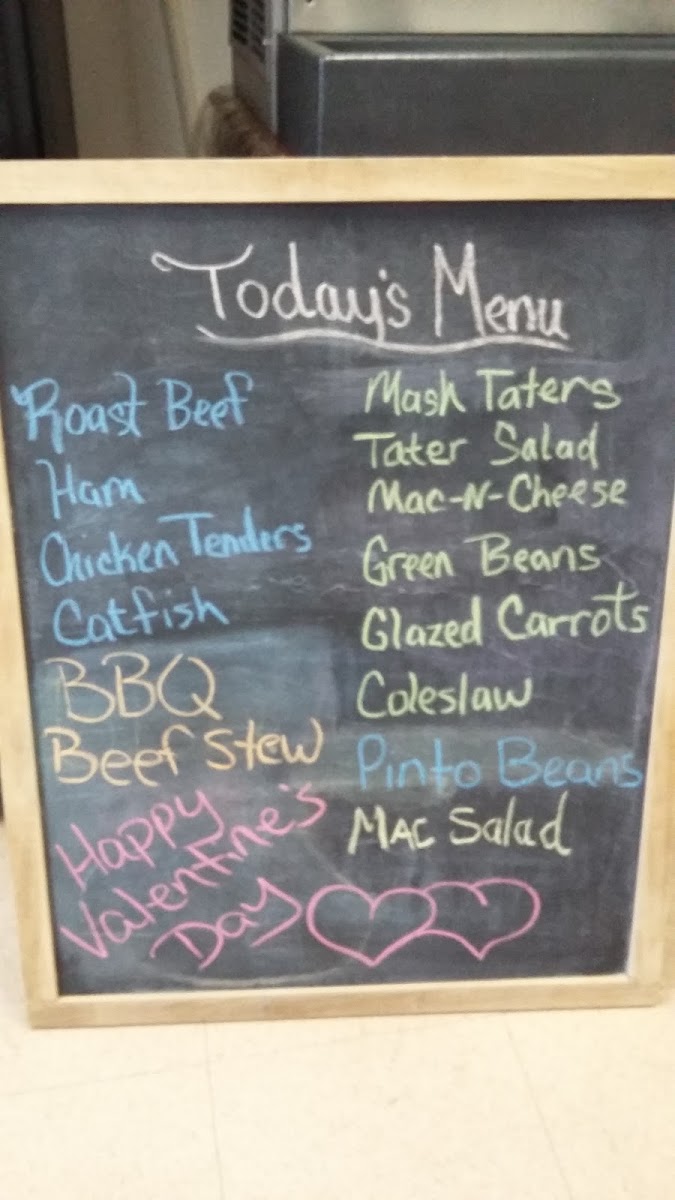 Today's Menu
Roast Beef
Ham
Chicken Tenders
Catfish
BBQ
Beef Stew
Happy
Valentine's
Day
Mash Taters
Tater Salad
Mac-N-Cheese
Green Beans
Glazed Carrots
Coleslaw
Pinto Beans
Mac Salad